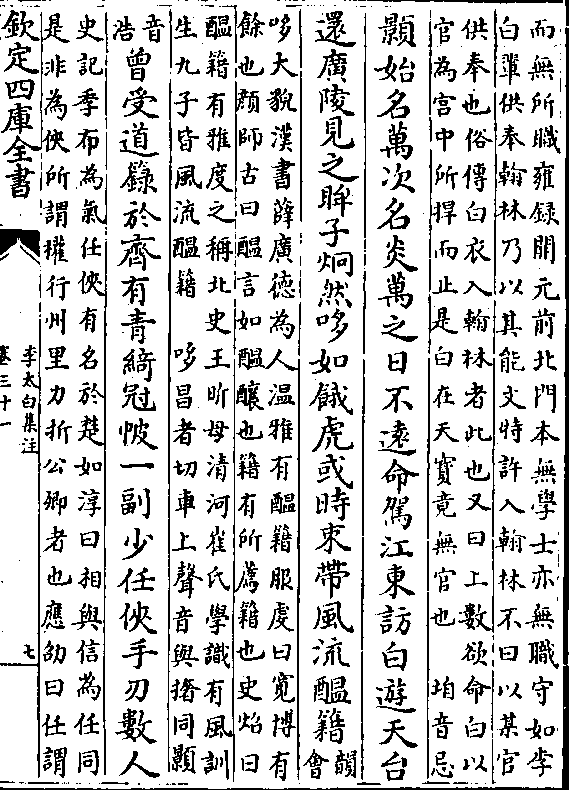 而無所職雍録開元前北門本無學士亦無職守如李
白輩供奉翰林乃以其能文特許入翰林不曰以某官
供奉也俗傳白衣入翰林者此也又曰上數欲命白以
官為宫中所捍而止是白在天寳竟無官也　垍音忌
顥始名萬次名炎萬之日不遠命駕江東訪白遊天台
還廣陵見之眸子炯然哆如餓虎或時束帶風流醖籍韻會
哆大貌漢書薛廣德為人温雅有醖籍服虔曰寛博有
餘也顔師古曰醖言如醖釀也籍有所薦籍也史炤曰
醖籍有雅度之稱北史王昕母清河崔氏學識有風訓
生九子皆風流醖籍　哆昌者切車上聲音與撦同顥
音浩曾受道籙於齊有青綺冠帔一副少任俠手刃數人
史記季布為氣任俠有名於楚如淳曰相與信為任同
是非為俠所謂權行州里力折公卿者也應劭曰任謂
欽定四庫全書
李太白集注
卷三十一
七